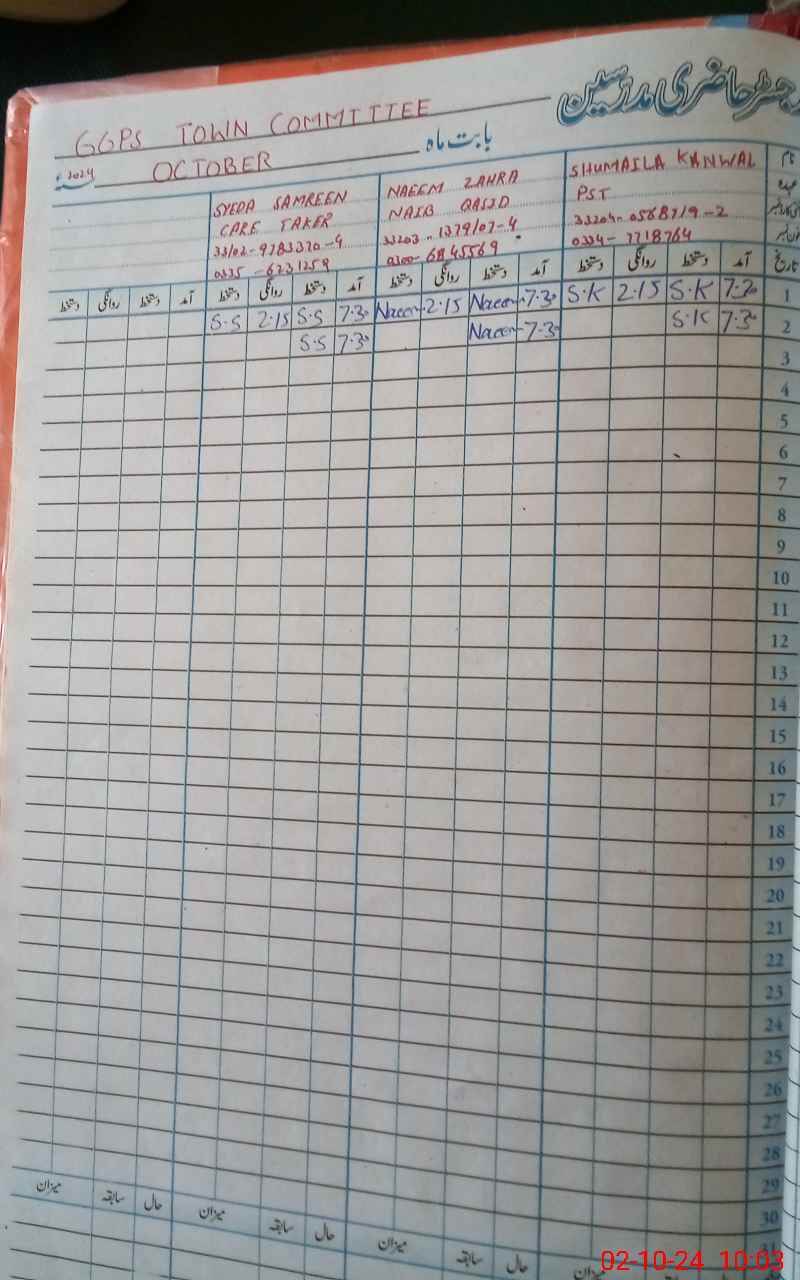 رجسٹر حاضری مدرسین
GGPS TOWN COMMITTEE
بابت ماہ OCTOBER 2024
نام SHUMAILA KANWAL NAEEM ZAHRA SYEDA SAMREEN
عہدہ PST NAIB QASID CARE TAKER
33204-0568719-2 33203-1379107-4 33102-9783370-4
0334-7718764 0300-6845569 0335-6731259
تاریخ آمد دستخط روانگی دستخط آمد دستخط روانگی دستخط آمد دستخط روانگی دستخط آمد دستخط روانگی دستخط
1 7.30 S.K 2.15 S.K 7.30 Naeem 2.15 Naeem 7.30 S.S 2.15 S.S
2 7.30 S.K 7.30 Naeem 7.30 S.S
3
4
5
6
7
8
9
10
11
12
13
14
15
16
17
18
19
20
21
22
23
24
25
26
27
28
29
30
31
میزان حال سابقہ میزان حال سابقہ میزان حال سابقہ میزان
02-10-24 10:03